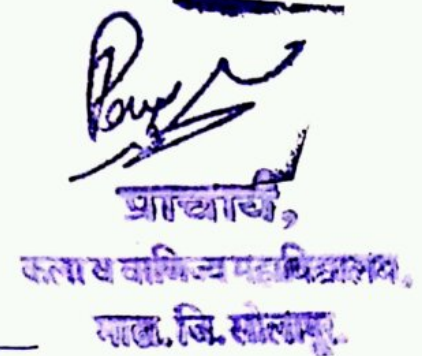 प्राचार्य,
कला व वाणिज्य महाविद्यालय,
माढा, जि. सोलापूर.